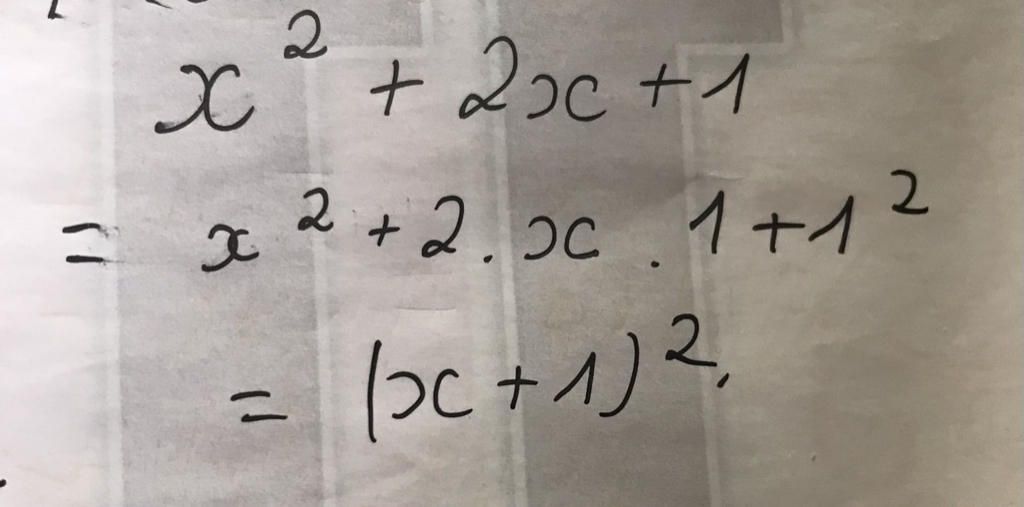 x² + 2x + 1
= x² + 2 . x . 1 + 1²
= (x + 1)².